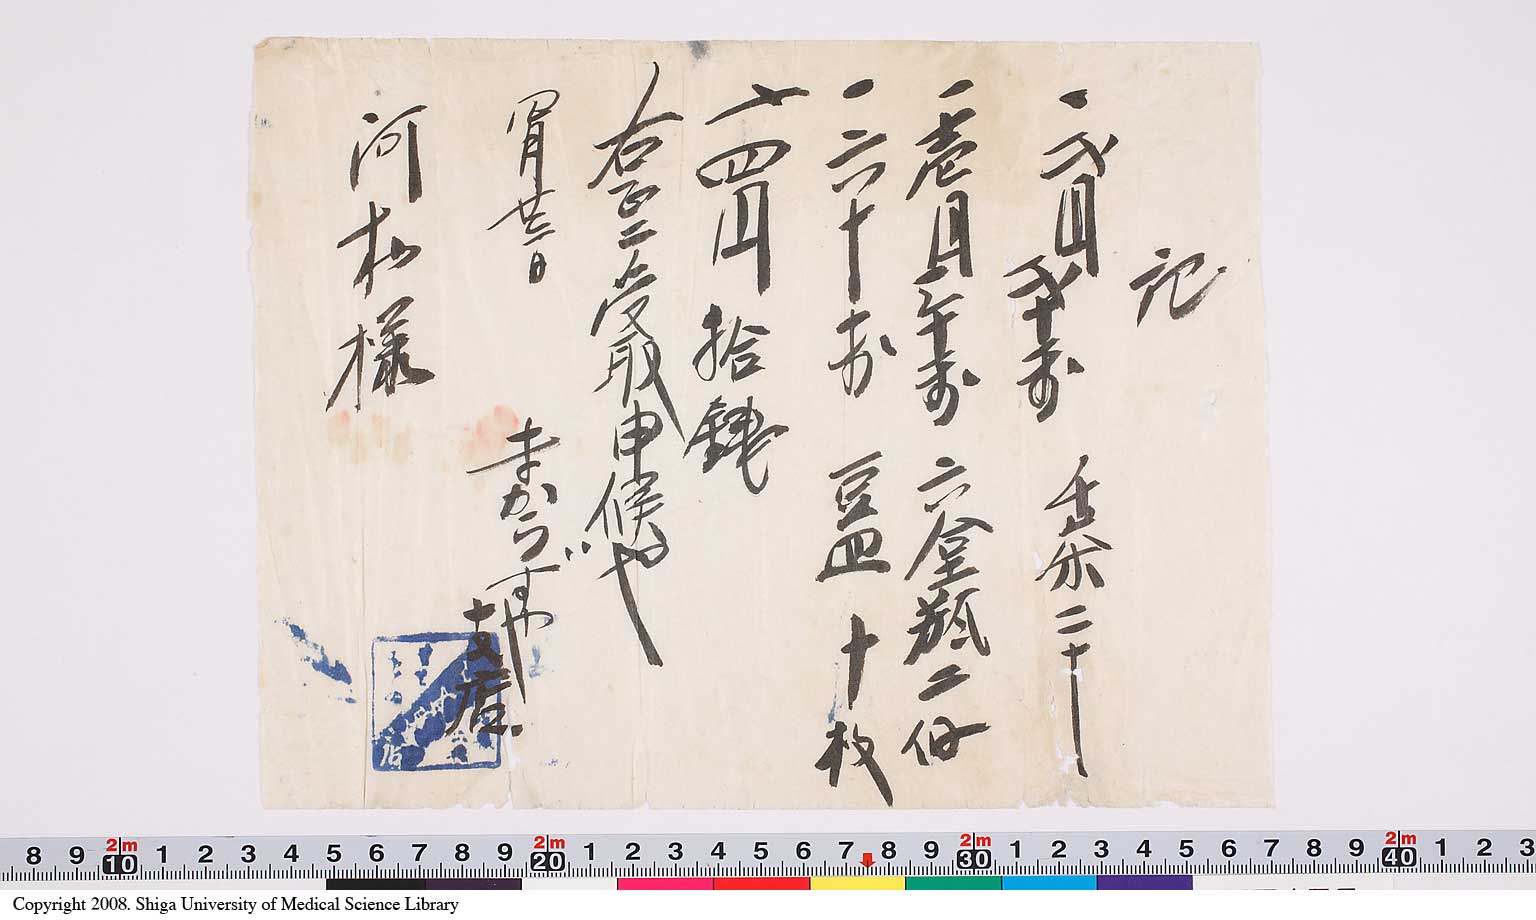 記
一 弐円弐十戋 二十
一 壱円三十戋 瓶二
一 六十戋 豆皿 十枚
〆四円拾銭
右正ニ受取申候也
四月廿三日
まからずや
支店
河村様
8 9 10 1 2 3 4 5 6 7 8 9 20 1 2 3 4 5 6 7 8 9 30 1 2 3 4 5 6 7 8 9 40 1 2 3
2m 2m 2m 2m
Copyright 2008. Shiga University of Medical Science Library